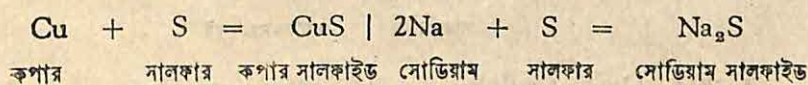 Cu + S = CuS | 2Na + S = Na₂S
কপার সালফার কপার সালফাইড সোডিয়াম সালফার সোডিয়াম সালফাইড